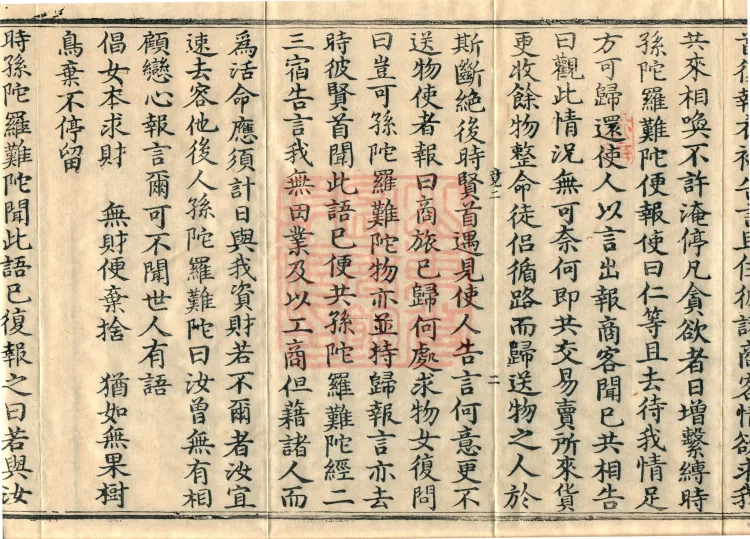 告言且住彼諸商客情欲求我
共來相喚不許淹停凡貪欲者日增繫縛時
孫陀羅難陀便報使曰仁等且去待我情足
方可歸還使人以言出報商客聞已共相告
曰觀此情況無可奈何即共交易賣所來貨
更收餘物整命徒侶循路而歸送物之人於
二
斯斷絕後時賢首遇見使人告言何意更不
送物使者報曰商旅已歸何處求物女復問
曰豈可孫陀羅難陀物亦並持歸報言亦去
時彼賢首聞此語已便共孫陀羅難陀經二
三宿告言我無田業及以工商但藉諸人而
爲活命應須計日與我資財若不爾者汝宜
速去容他後人孫陀羅難陀曰汝曾無有相
顧戀心報言爾可不聞世人有語
倡女本求財　無財便棄捨　猶如無果樹
鳥棄不停留
時孫陀羅難陀聞此語已復報之曰若與汝